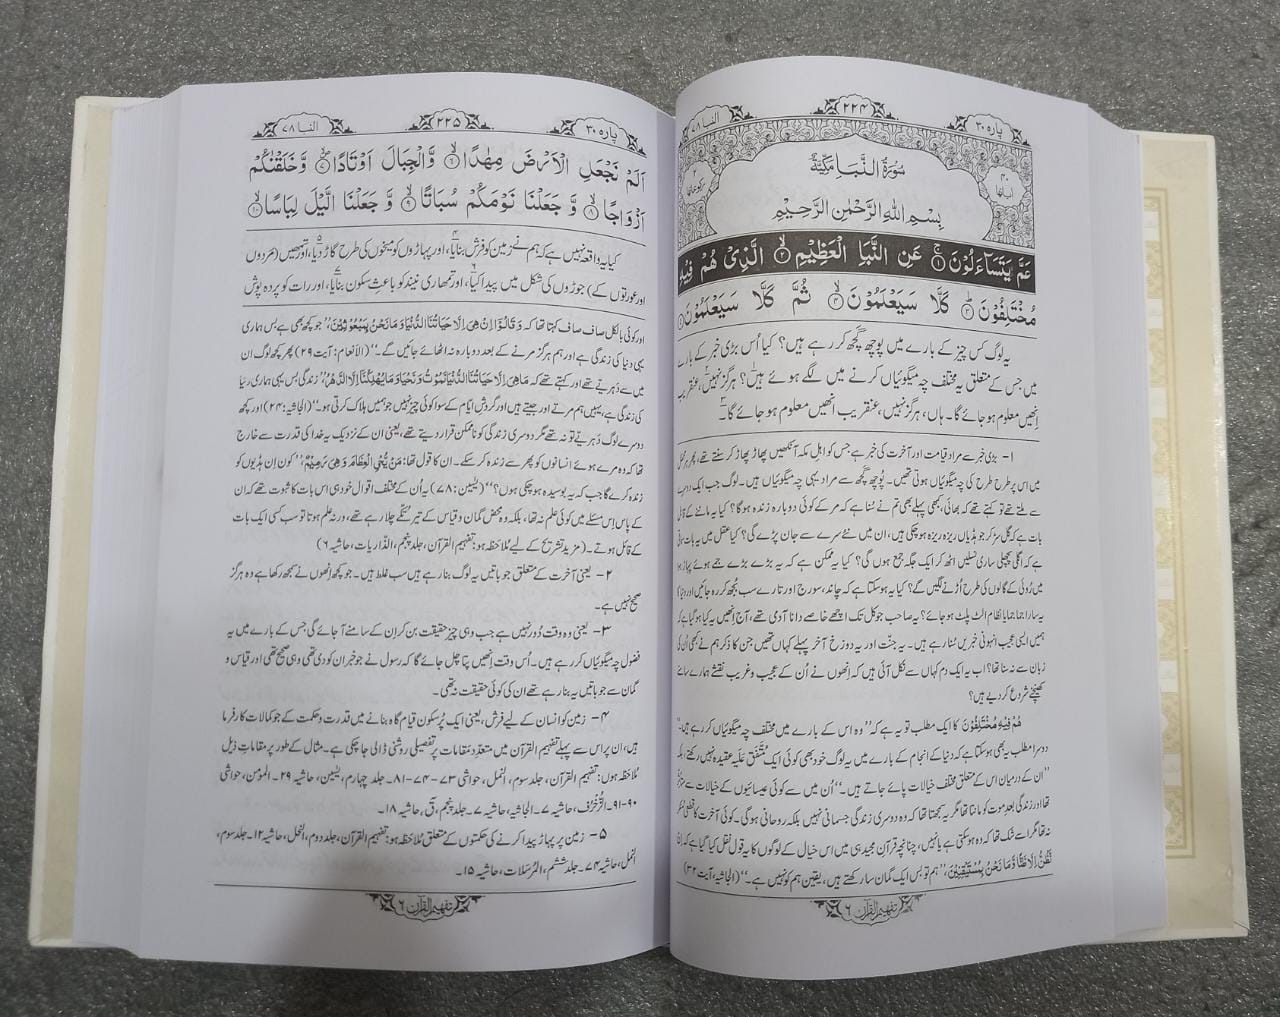 پارہ ۳۰
۲۲۴
النبا ۷۸
اٰیاتہا ۴۰
سُوۡرَۃُ النَّبَاِ مَکِّیَّۃٌ
رکوعاتہا ۲
بِسْمِ اللهِ الرَّحْمٰنِ الرَّحِيْمِ
عَمَّ يَتَسَآءَلُوْنَ ۝۱ عَنِ النَّبَاِ الْعَظِيْمِ ۝۲ الَّذِيْ هُمْ فِيْهِ
مُخْتَلِفُوْنَ ۝۳ كَلَّا سَيَعْلَمُوْنَ ۝۴ ثُمَّ كَلَّا سَيَعْلَمُوْنَ
یہ لوگ کس چیز کے بارے میں پوچھ گچھ کر رہے ہیں؟ کیا اُس بڑی خبر کے بارے
میں جس کے متعلق یہ مختلف چہ میگوئیاں کرنے میں لگے ہوئے ہیں؟ ہرگز نہیں، عنقریب
اِنھیں معلوم ہو جائے گا۔ ہاں، ہرگز نہیں، عنقریب انھیں معلوم ہو جائے گا۔
۱- بڑی خبر سے مراد قیامت اور آخرت کی خبر ہے جس کو اہلِ مکہ آنکھیں پھاڑ پھاڑ کر سنتے تھے، پھر ہر محفل
میں اس پر طرح طرح کی چہ میگوئیاں ہوتی تھیں۔ پُوچھ گچھ سے مراد یہی چہ میگوئیاں ہیں۔ لوگ جب ایک دوسرے
سے ملتے تھے تو کہتے تھے کہ بھائی، کبھی پہلے بھی تم نے سُنا ہے کہ مر کے کوئی دوبارہ زندہ ہوگا؟ کیا یہ ماننے کے قابل
بات ہے کہ گل سڑ کر جو ہڈیاں ریزہ ریزہ ہو چکی ہیں، ان میں نئے سرے سے جان پڑے گی؟ کیا عقل میں یہ بات سماتی
ہے کہ اگلی پچھلی ساری نسلیں اٹھ کر ایک جگہ جمع ہوں گی؟ کیا یہ ممکن ہے کہ یہ بڑے بڑے جمے ہوئے پہاڑ ہوا
میں رُوئی کے گالوں کی طرح اڑنے لگیں گے؟ کیا یہ ہو سکتا ہے کہ چاند، سورج اور تارے سب بُجھ کر رہ جائیں اور دنیا کا
یہ سارا جما جمایا نظام الٹ پلٹ ہو جائے؟ یہ صاحب جو کل تک اچھے خاصے دانا آدمی تھے، آج اِنھیں یہ کیا ہو گیا ہے کہ
ہمیں ایسی عجیب انہونی خبریں سُنا رہے ہیں۔ یہ جنّت اور یہ دوزخ آخر پہلے کہاں تھیں جن کا ذکر ہم نے کبھی اُن کی
زبان سے نہ سنا تھا؟ اب یہ ایک دم کہاں سے نکل آئی ہیں کہ اِنھوں نے اُن کے عجیب و غریب نقشے ہمارے سامنے
کھینچنے شروع کر دیے ہیں؟
هُمْ فِيْهِ مُخْتَلِفُوْنَ کا ایک مطلب تو یہ ہے کہ ”وہ اس کے بارے میں مختلف چہ میگوئیاں کر رہے ہیں۔“
دوسرا مطلب یہ بھی ہو سکتا ہے کہ دنیا کے انجام کے بارے میں یہ لوگ خود بھی کوئی ایک مُتَّفق عَلَیہ عقیدہ نہیں رکھتے، بلکہ
”ان کے درمیان اس کے متعلق مختلف خیالات پائے جاتے ہیں۔“ اُن میں سے کوئی عیسائیوں کے خیالات سے متاثر
تھا اور زندگی بعدِ موت کو مانتا تھا مگر یہ سمجھتا تھا کہ وہ دوسری زندگی جسمانی نہیں بلکہ روحانی ہوگی۔ کوئی آخرت کا قطعی مُنکر
نہ تھا مگر اسے شک تھا کہ وہ ہو سکتی ہے یا نہیں، چنانچہ قرآنِ مجید ہی میں اس خیال کے لوگوں کا یہ قول نقل کیا گیا ہے کہ اِنْ
نَّظُنُّ اِلَّا ظَنًّا وَّمَا نَحْنُ بِمُسْتَيْقِنِيْنَ، ”ہم تو بس ایک گمان سا رکھتے ہیں، یقین ہم کو نہیں ہے۔“ (الجاثیہ، آیت ۳۲)
تفہیم القرآن ۶
پارہ ۳۰
۲۲۵
النبا ۷۸
اَلَمْ نَجْعَلِ الْاَرْضَ مِهٰدًا ۝۶ وَّالْجِبَالَ اَوْتَادًا ۝۷ وَّخَلَقْنٰكُمْ
اَزْوَاجًا ۝۸ وَّجَعَلْنَا نَوْمَكُمْ سُبَاتًا ۝۹ وَّجَعَلْنَا الَّيْلَ لِبَاسًا ۝۱۰
کیا یہ واقعہ نہیں ہے کہ ہم نے زمین کو فرش بنایا۴، اور پہاڑوں کو میخوں کی طرح گاڑ دیا۵، اور تمھیں (مَردوں
اور عورتوں کے) جوڑوں کی شکل میں پیدا کیا۶، اور تمھاری نیند کو باعثِ سکون بنایا۷، اور رات کو پردہ پوش
اور کوئی بالکل صاف صاف کہتا تھا کہ وَقَالُوْٓا اِنْ هِىَ اِلَّا حَيَاتُنَا الدُّنْيَا وَمَا نَحْنُ بِمَبْعُوْثِيْنَ، ”جو کچھ بھی ہے بس ہماری
یہی دنیا کی زندگی ہے اور ہم ہرگز مرنے کے بعد دوبارہ نہ اٹھائے جائیں گے۔“ (الاَنعام: آیت ۲۹) پھر کچھ لوگ ان
میں سے دَہریے تھے اور کہتے تھے کہ مَا هِىَ اِلَّا حَيَاتُنَا الدُّنْيَا نَمُوْتُ وَنَحْيَا وَمَا يُهْلِكُنَآ اِلَّا الدَّهْرُ، ”زندگی بس یہی ہماری دنیا
کی زندگی ہے، یہیں ہم مرتے اور جیتے ہیں اور گردشِ ایام کے سوا کوئی چیز نہیں جو ہمیں ہلاک کرتی ہو۔“ (الجاثیہ: ۲۴) اور کچھ
دوسرے لوگ دَہریے تو نہ تھے مگر دوسری زندگی کو ناممکن قرار دیتے تھے، یعنی ان کے نزدیک یہ خدا کی قدرت سے خارج
تھا کہ وہ مرے ہوئے انسانوں کو پھر سے زندہ کر سکے۔ ان کا قول تھا: مَنْ يُّحْىِ الْعِظَامَ وَهِىَ رَمِيْمٌ، ”کون اِن ہڈیوں کو
زندہ کرے گا جب کہ یہ بوسیدہ ہو چکی ہوں؟“ (یٰسین: ۷۸) یہ اُن کے مختلف اقوال خود ہی اس بات کا ثبوت تھے کہ ان
کے پاس اِس مسئلے میں کوئی علم نہ تھا، بلکہ وہ محض گمان و قیاس کے تیر تکّے چلا رہے تھے، ورنہ علم ہوتا تو سب کسی ایک بات
کے قائل ہوتے۔ (مزید تشریح کے لیے مُلاحَظہ ہو: تفہیم القرآن، جلد پنجم، الذّاریات، حاشیہ ۶)
۲- یعنی آخرت کے متعلق جو باتیں یہ لوگ بنا رہے ہیں سب غلط ہیں۔ جو کچھ انھوں نے سمجھ رکھا ہے وہ ہرگز
صحیح نہیں ہے۔
۳- یعنی وہ وقت دُور نہیں ہے جب وہی چیز حقیقت بن کر اِن کے سامنے آ جائے گی جس کے بارے میں یہ
فضول چہ میگوئیاں کر رہے ہیں۔ اُس وقت اِنھیں پتا چل جائے گا کہ رسول نے جو خبر ان کو دی تھی وہی صحیح تھی اور قیاس و
گمان سے جو باتیں یہ بنا رہے تھے ان کی کوئی حقیقت نہ تھی۔
۴- زمین کو انسان کے لیے فرش، یعنی ایک پُرسکون قیام گاہ بنانے میں قدرت و حکمت کے جو کمالات کارفرما
ہیں، ان پر اس سے پہلے تفہیم القرآن میں متعدد مَقامات پر تفصیلی روشنی ڈالی جا چکی ہے۔ مثال کے طور پر مقاماتِ ذیل
مُلاحَظہ ہوں: تفہیم القرآن، جلد سوم، النمل، حواشی ۷۳-۷۴-۸۱۔ جلد چہارم، یٰسین، حاشیہ ۲۹۔ المؤمن، حواشی
۹۰-۹۱۔ الزُخرُف، حاشیہ ۷۔ الجاثیہ، حاشیہ ۷۔ جلد پنجم، قٓ، حاشیہ ۱۸۔
۵- زمین پر پہاڑ پیدا کرنے کی حکمتوں کے متعلق مُلاحَظہ ہو: تفہیم القرآن، جلد دوم، النحل، حاشیہ ۱۲۔ جلد سوم،
النمل، حاشیہ ۷۴۔ جلد ششم، المُرسَلات، حاشیہ ۱۵۔
تفہیم القرآن ۶